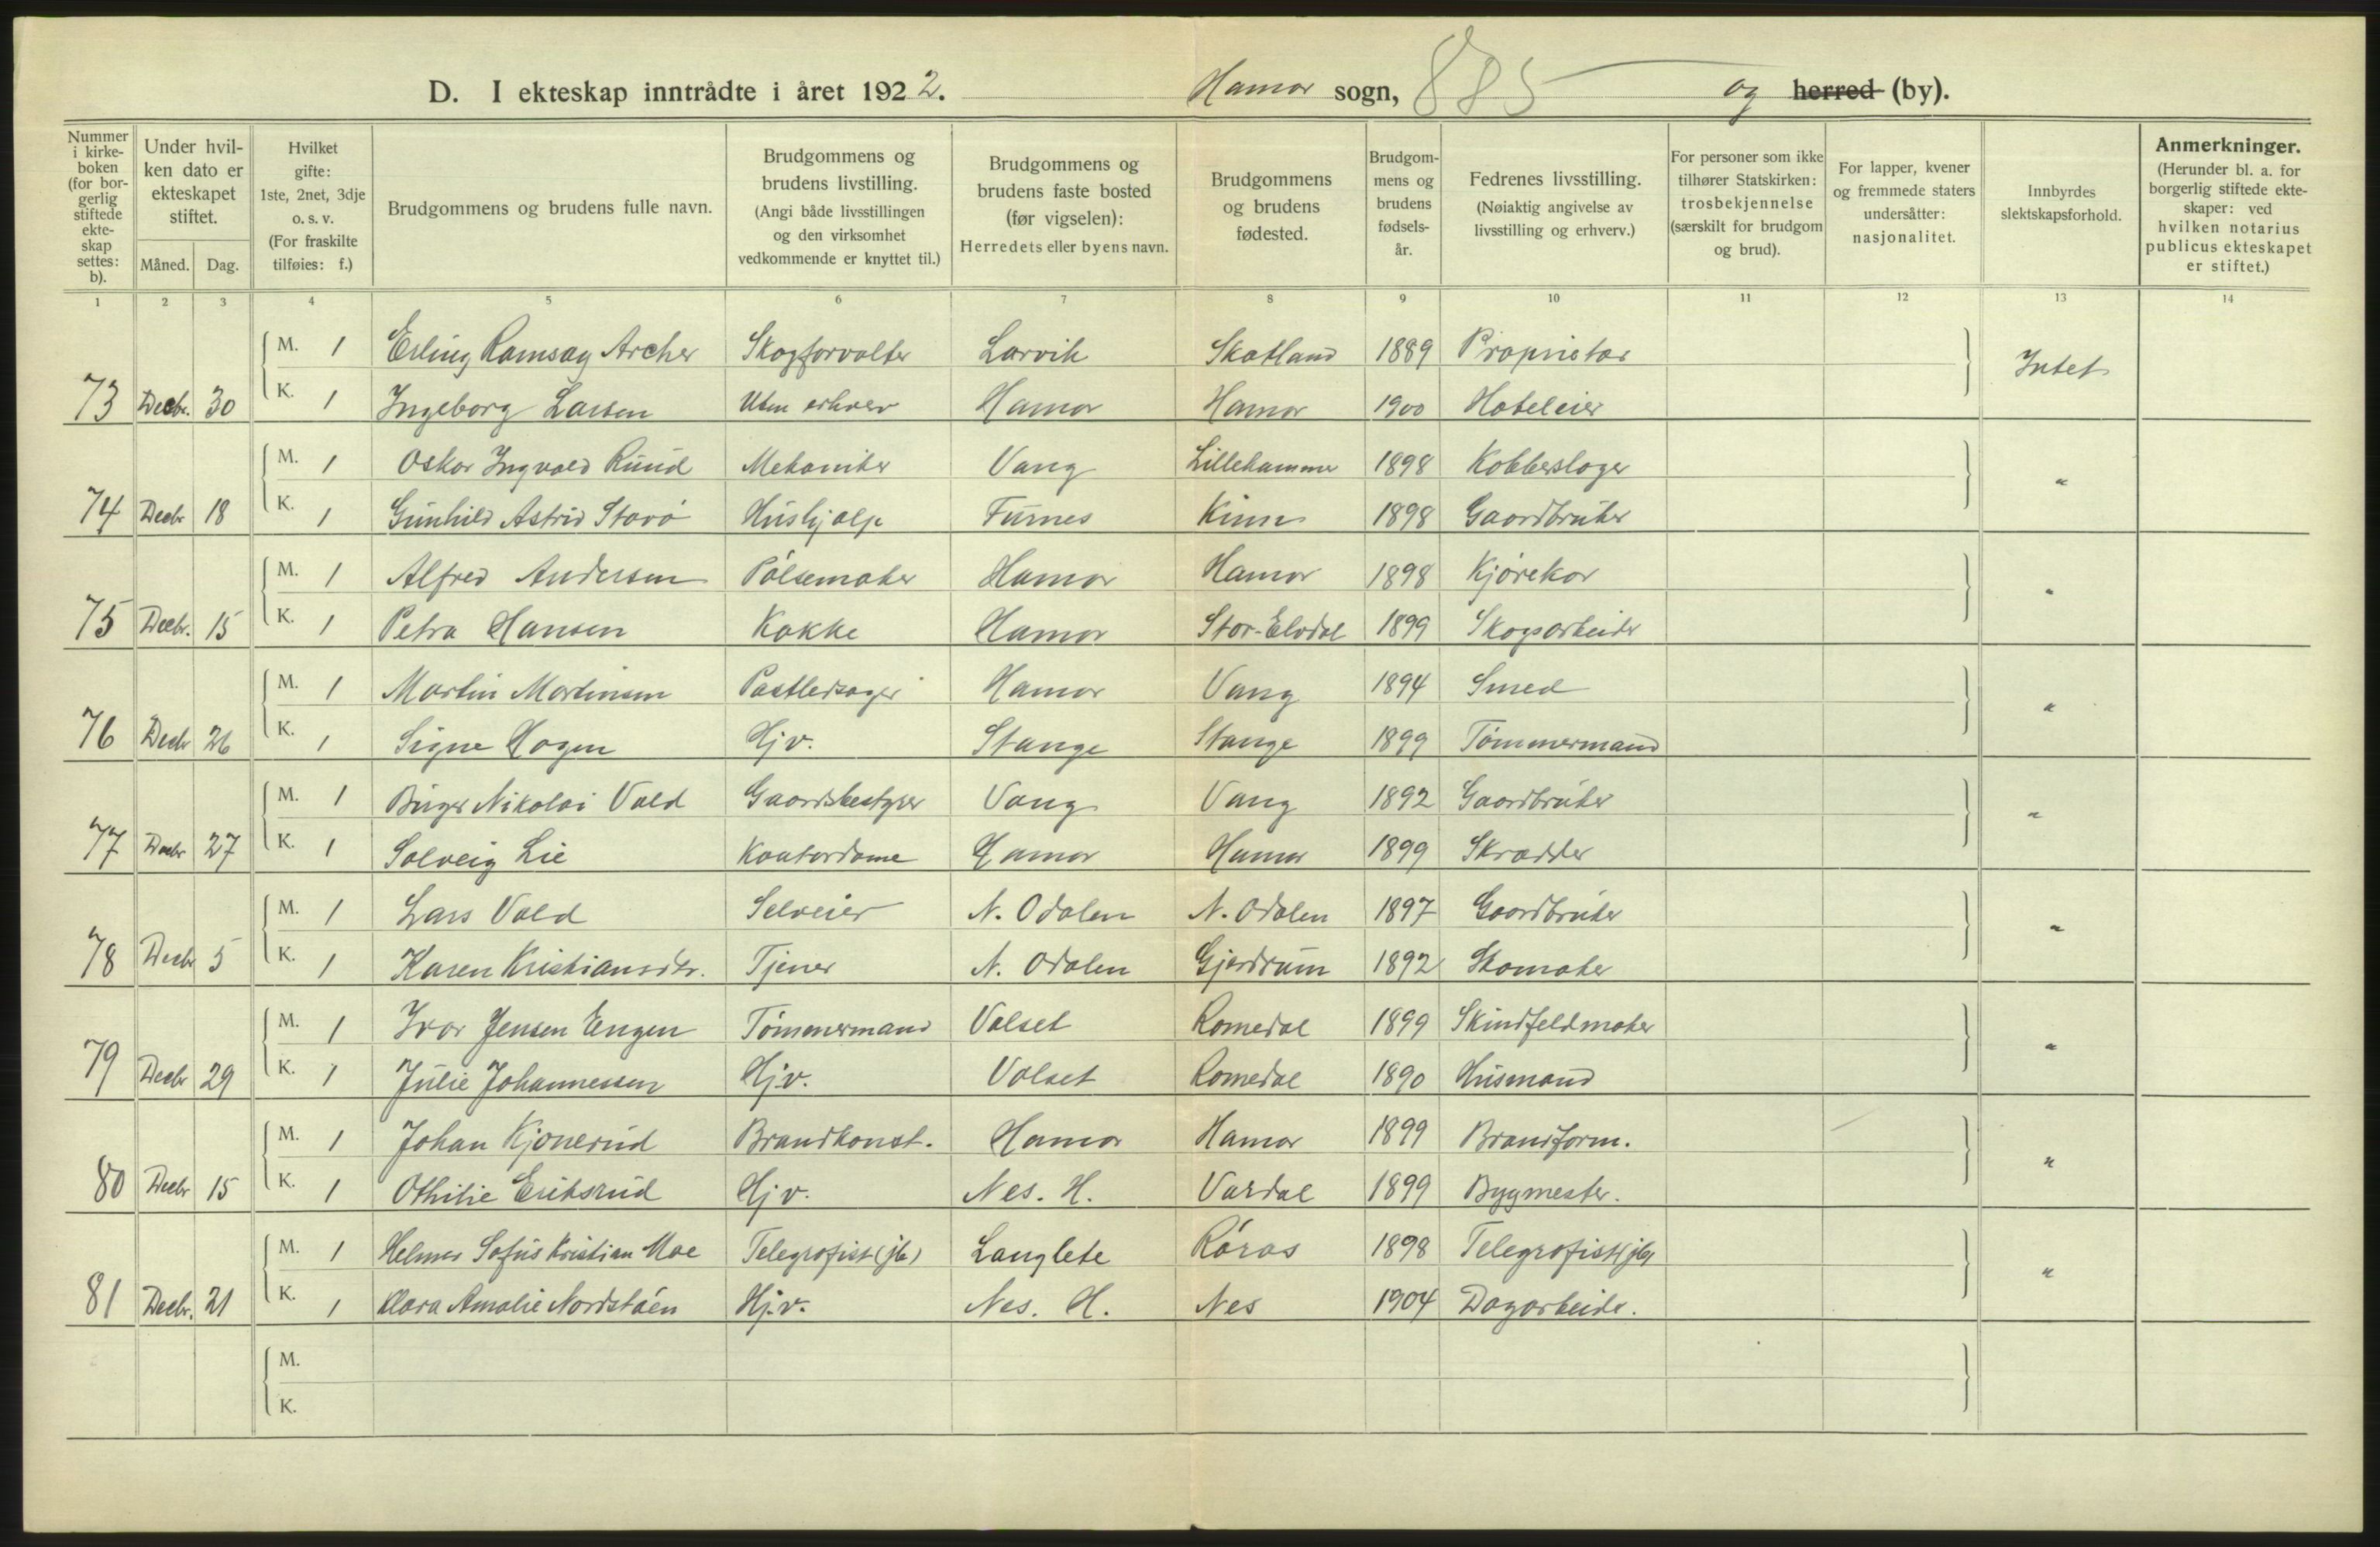 D. I ekteskap inntrådte i året 1922. Hamar sogn, 885 og herred (by).
Nummer i kirkeboken (for borgerlig stiftede ekteskap settes: b).
Under hvilken dato er ekteskapet stiftet.
Måned. Dag.
Hvilket gifte: 1ste, 2net, 3dje o. s. v. (For fraskilte tilføies: f.)
Brudgommens og brudens fulle navn.
Brudgommens og brudens livstilling. (Angi både livsstillingen og den virksomhet vedkommende er knyttet til.)
Brudgommens og brudens faste bosted (før vigselen): Herredets eller byens navn.
Brudgommens og brudens fødested.
Brudgommens og brudens fødselsår.
Fedrenes livsstilling. (Nøiaktig angivelse av livsstilling og erhverv.)
For personer som ikke tilhører Statskirken: trosbekjennelse (særskilt for brudgom og brud).
For lapper, kvener og fremmede staters undersåtter: nasjonalitet.
Innbyrdes slektskapsforhold.
Anmerkninger. (Herunder bl. a. for borgerlig stiftede ekteskaper: ved hvilken notarius publicus ekteskapet er stiftet.)
1 2 3 4 5 6 7 8 9 10 11 12 13 14
M. 1 Erling Ramsay Archer Skogforvalter Larvik Skotland 1889 Proprietær Intet
73 Decbr. 30 K. 1 Ingeborg Larsen Uten erhverv Hamar Hamar 1900 Hoteleier
M. 1 Oskar Ingvald Ruud Mekaniker Vang Lillehammer 1898 Kobberslager "
74 Decbr 18 K. 1 Gunhild Astrid Starø Hushjælp Furnes Kinn 1898 Gaardbruker
M. 1 Alfred Andersen Pølsemaker Hamar Hamar 1898 Kjørekar "
75 Decbr. 15 K. 1 Petra Hansen Kokke Hamar Stor-Elvdal 1899 Skogsarbeider
M. 1 Martin Martinsen Postledsager Hamar Vang 1894 Smed "
76 Decbr 26 K. 1 Signe Hagen Hj.v. Stange Stange 1899 Tømmermand
M. 1 Birger Nikolai Vold Gaardsbestyrer Vang Vang 1892 Gaardbruker "
77 Decbr 27 K. 1 Solveig Lie Kontordame Hamar Hamar 1899 Skrædder
M. 1 Lars Vold Selveier N. Odalen N. Odalen 1897 Gaardbruker "
78 Decbr 5 K. 1 Karen Kristiansdtr. Tjener N. Odalen Gjerdrum 1892 Skomaker
M. 1 Ivar Jensen Engen Tømmermand Valset Romedal 1899 Skindfeldmaker "
79 Decbr 29 K. 1 Julie Johannessen Hj.v. Valset Romedal 1890 Husmand
M. 1 Johan Kjonerud Brandkonst. Hamar Hamar 1899 Brandform. "
80 Decbr 15 K. 1 Othilie Eriksrud Hj.v. Nes. H. Vardal 1899 Bygmester.
M. 1 Helmer Sofus Kristian Moe Telegrafist (jb) Langlete Røros 1898 Telegrafist (jb) "
81 Decbr. 21 K. 1 Klara Amalie Nordstaen Hj.v. Nes. H. Nes 1904 Dagarbeider.
M.
K.